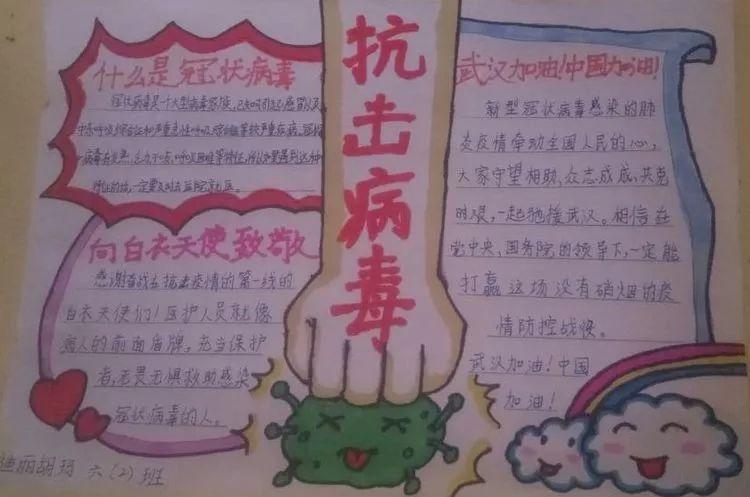 什么是冠状病毒
冠状病毒是一个大型病毒家族,已知可引起感冒以及
中东呼吸综合征和严重急性呼吸综合征等较严重疾病。
病毒有发热、
一定要及时去医院就医。
向白衣天使致敬
感谢奋战在抗击疫情的第一线的
白衣天使们!医护人员就像
病人的前面盾牌,充当保护
者,无畏无惧救助感染
冠状病毒的人。
迪丽胡玛 六(2)班
抗击病毒
武汉加油!中国加油!
新型冠状病毒感染的肺
炎疫情牵动全国人民的心,
大家守望相助,众志成城,共克
时艰,一起驰援武汉。相信在
党中央、国务院的领导下,一定能
打赢这场没有硝烟的疫
情防控战役。
武汉加油!中国
加油!